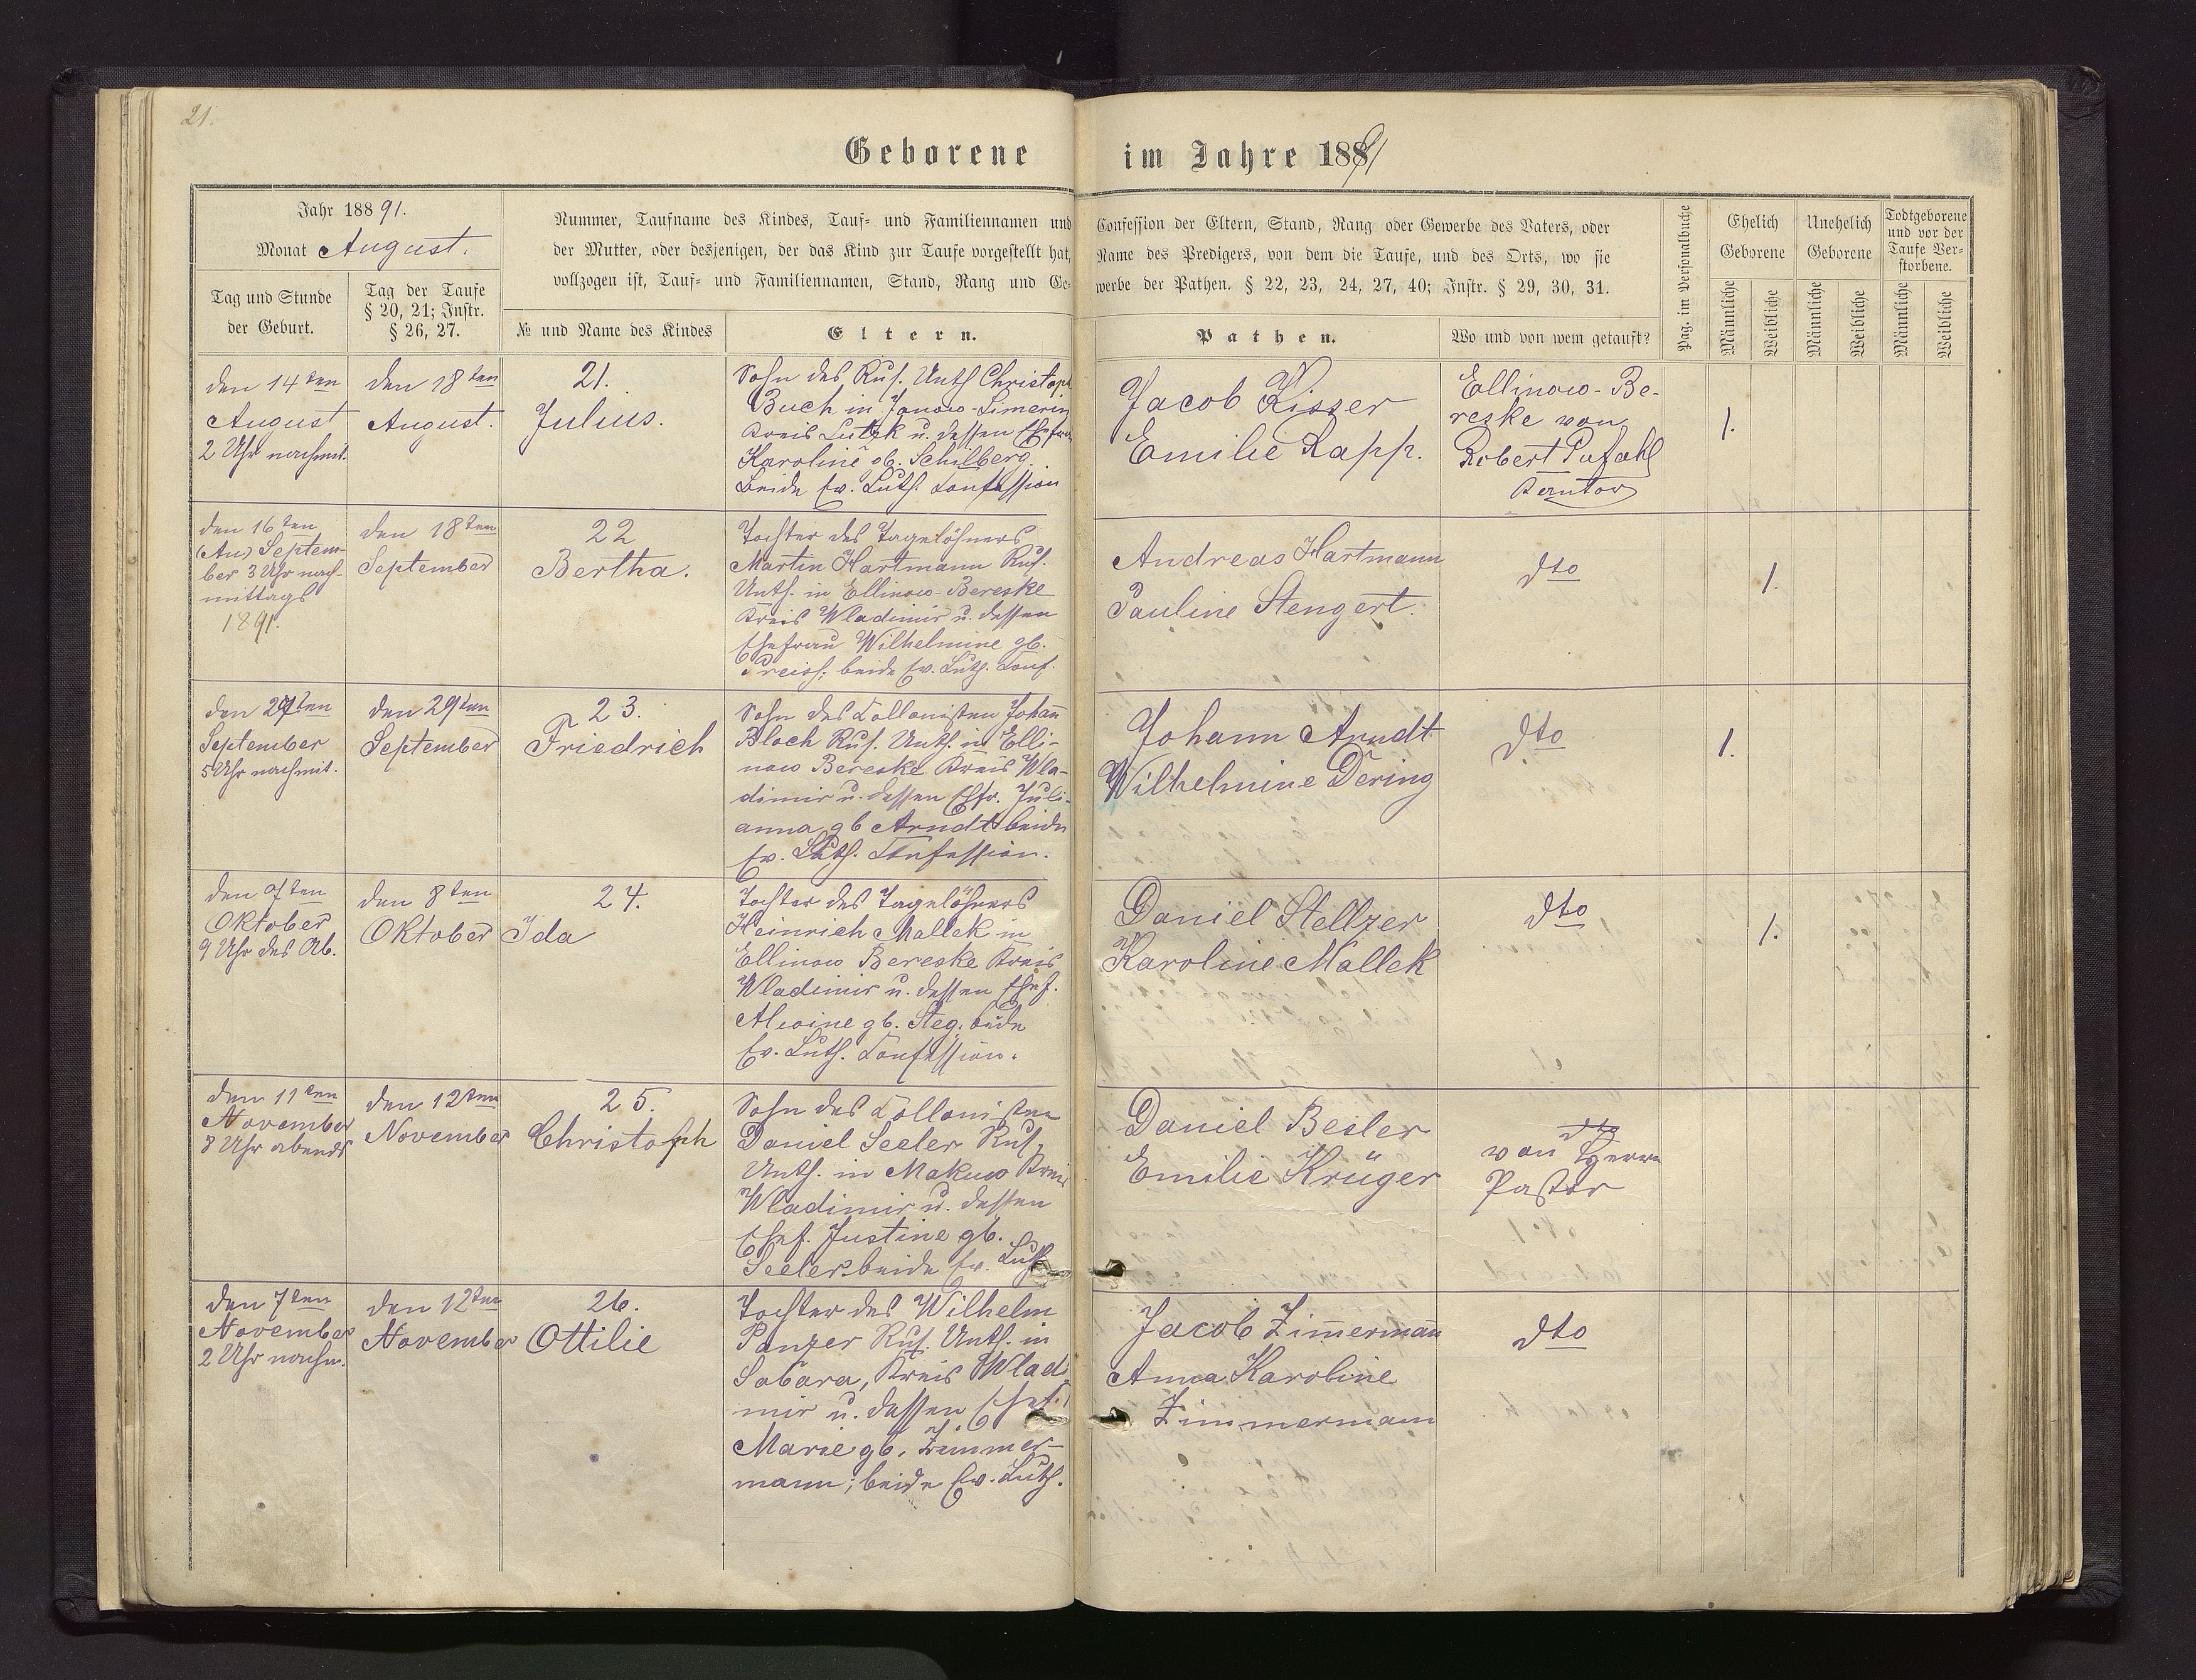 21.
Geborene im Jahre 1891
Jahr 18891.
Monat August.
Tag und Stunde
der Geburt.
Tag der Taufe
§ 20, 21; Instr.
§ 26, 27.
Nummer, Taufname des Kindes, Tauf- und Familiennamen und
der Mutter, oder desjenigen, der das Kind zur Taufe vorgestellt hat,
vollzogen ist, Tauf- und Familiennamen, Stand, Rang und Ge-
№ und Name des Kindes
Eltern.
Confession der Eltern, Stand, Rang oder Gewerbe des Vaters, oder
Name des Predigers, von dem die Taufe, und des Orts, wo sie
werbe der Pathen. § 22, 23, 24, 27, 40; Instr. § 29, 30, 31.
Pathen.
Wo und von wem getauft?
Pag. im Personalbuche
Ehelich
Geborene
Unehelich
Geborene
Todtgeborene
und vor der
Taufe Ver-
storbene.
Männliche
Weibliche
Männliche
Weibliche
Männliche
Weibliche
den 14ten
August
2 Uhr nachmit.
den 18ten
August.
21.
Julius.
Sohn des Rus. Unth Christoph
Buch in Janow-Simerin
Kreis Lutzk u. dessen Ehefrau
Karoline gb. Schilberg
beide Ev. Luth. Confession
Jacob Kisser
Emilie Rapp.
Ellinow-Be-
reske von
Robert Pufahl
Kantor
1.
den 16ten
(Au) Septem-
ber 3 Uhr nach-
mittags
1891.
den 18ten
September
22
Bertha.
Tochter des Tagelöhners
Martin Hartmann Rus.
Unth. in Ellinow-Bereske
Kreis Wladimir u. dessen
Ehefrau Wilhelmine gb.
Preiss; beide Ev. Luth. Conf.
Andreas Hartmann
Pauline Stengert.
dto
1.
den 27ten
September
5 Uhr nachmit.
den 29ten
September
23.
Friedrich
Sohn des Collonisten Johann
Bloch Rus. Unth. in Elli-
now Bereske Kreis Wla-
dimir u. dessen Ehfr. Juli-
anna gb Arndt beide
Ev. Luth. Confession.
Johann Arndt
Wilhelmine Dering
dto
1.
den 7ten
Oktober
9 Uhr des Ab.
den 8ten
Oktober
24.
Ida
Tochter des Tagelöhners
Heinrich Mallek in
Ellinow Bereske Kreis
Wladimir u. dessen Ehef.
Alwine gb. Steg. beide
Ev. Luth. Confession.
Daniel Stellzer
Karoline Mallek
dto
1.
den 11ten
November
8 Uhr abends
den 12ten
November
25.
Christoph
Sohn des Collonisten
Daniel Seeler Rus.
Unth. in Makuw Kreis
Wladimir u. dessen
Ehef. Justine gb.
Seeler beide Ev. Luth
Daniel Beiler
Emilie Krüger
dto
von Herrn
Pastor
den 7ten
November
2 Uhr nachm.
den 12ten
November
26.
Ottilie
Tochter des Wilhelm
Panzer Rus. Unth. in
Sabara, Kreis Wladi
mir u. dessen Ehef.
Marie gb. Zimmer-
mann; beide Ev. Luth.
Jacob Zimmermann
Anna Karoline
Zimmermann
dto